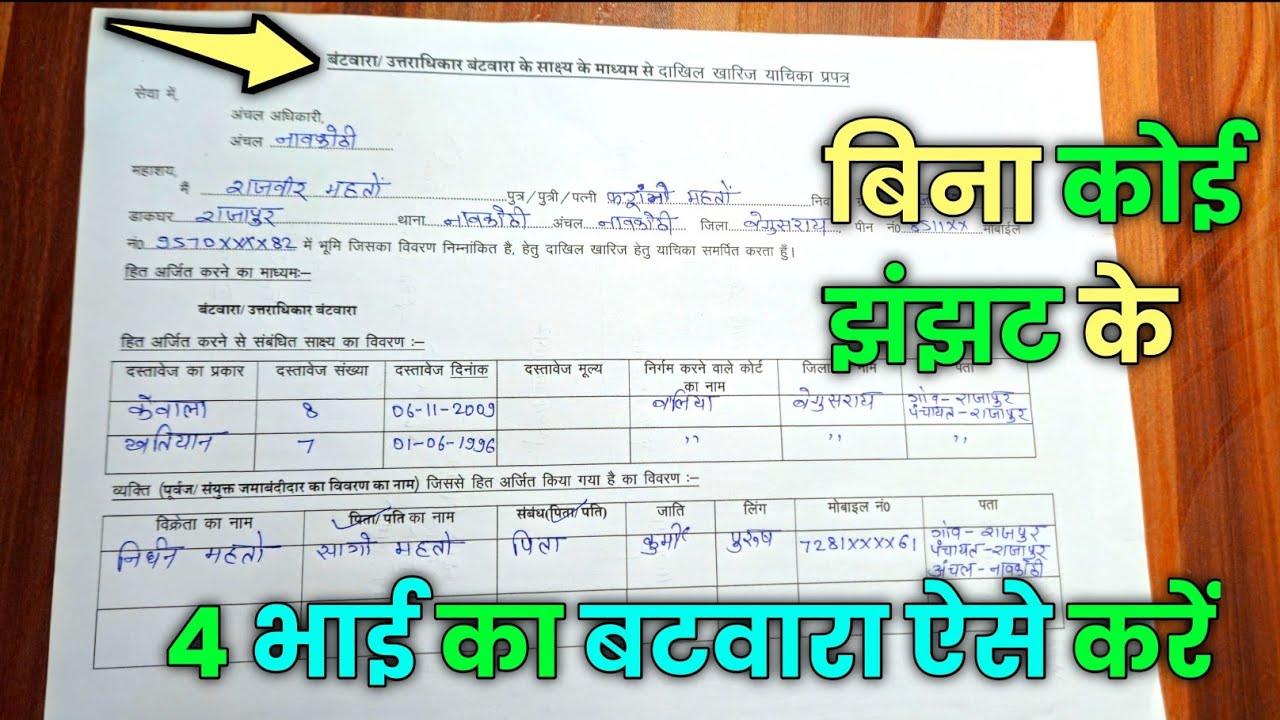 बंटवारा/ उत्तराधिकार बंटवारा के साक्ष्य के माध्यम से दाखिल खारिज याचिका प्रपत्र
सेवा में,
अंचल अधिकारी,
अंचल नावकोठी
महाशय,
मैं राजवीर महतों पुत्र/पुत्री/पत्नी महतों
डाकघर राजापुर थाना नावकोठी अंचल नावकोठी जिला बेगुसराय, पीन नं० 8511xx मोबाइल
नं० 9570XXXX82 में भूमि जिसका विवरण निम्नांकित है, हेतु दाखिल खारिज हेतु याचिका समर्पित करता हुँ।
हित अर्जित करने का माध्यमः–
बंटवारा/ उत्तराधिकार बंटवारा
हित अर्जित करने से संबंधित साक्ष्य का विवरण :–
दस्तावेज का प्रकार दस्तावेज संख्या दस्तावेज दिनांक दस्तावेज मूल्य निर्गम करने वाले कोर्ट का नाम नाम पता
केवाला 8 06-11-2009 बलिया बेगुसराय गाँव-राजापुर पंचायत-राजापुर
खतियान 7 01-06-1996 ,, ,, ,,
व्यक्ति (पूर्वज/ संयुक्त जमाबंदीदार का विवरण का नाम) जिससे हित अर्जित किया गया है का विवरण :–
विक्रेता का नाम पिता/ पति का नाम संबंध(पिता/पति) जाति लिंग मोबाइल नं० पता
निर्धन महतो महतो पिता कुर्मी पुरूष 7281XXXX61 गाँव-राजपुर पंचायत-राजापुर अंचल-नावकोठी
बिना कोई
झंझट के
4 भाई का बटवारा ऐसे करें